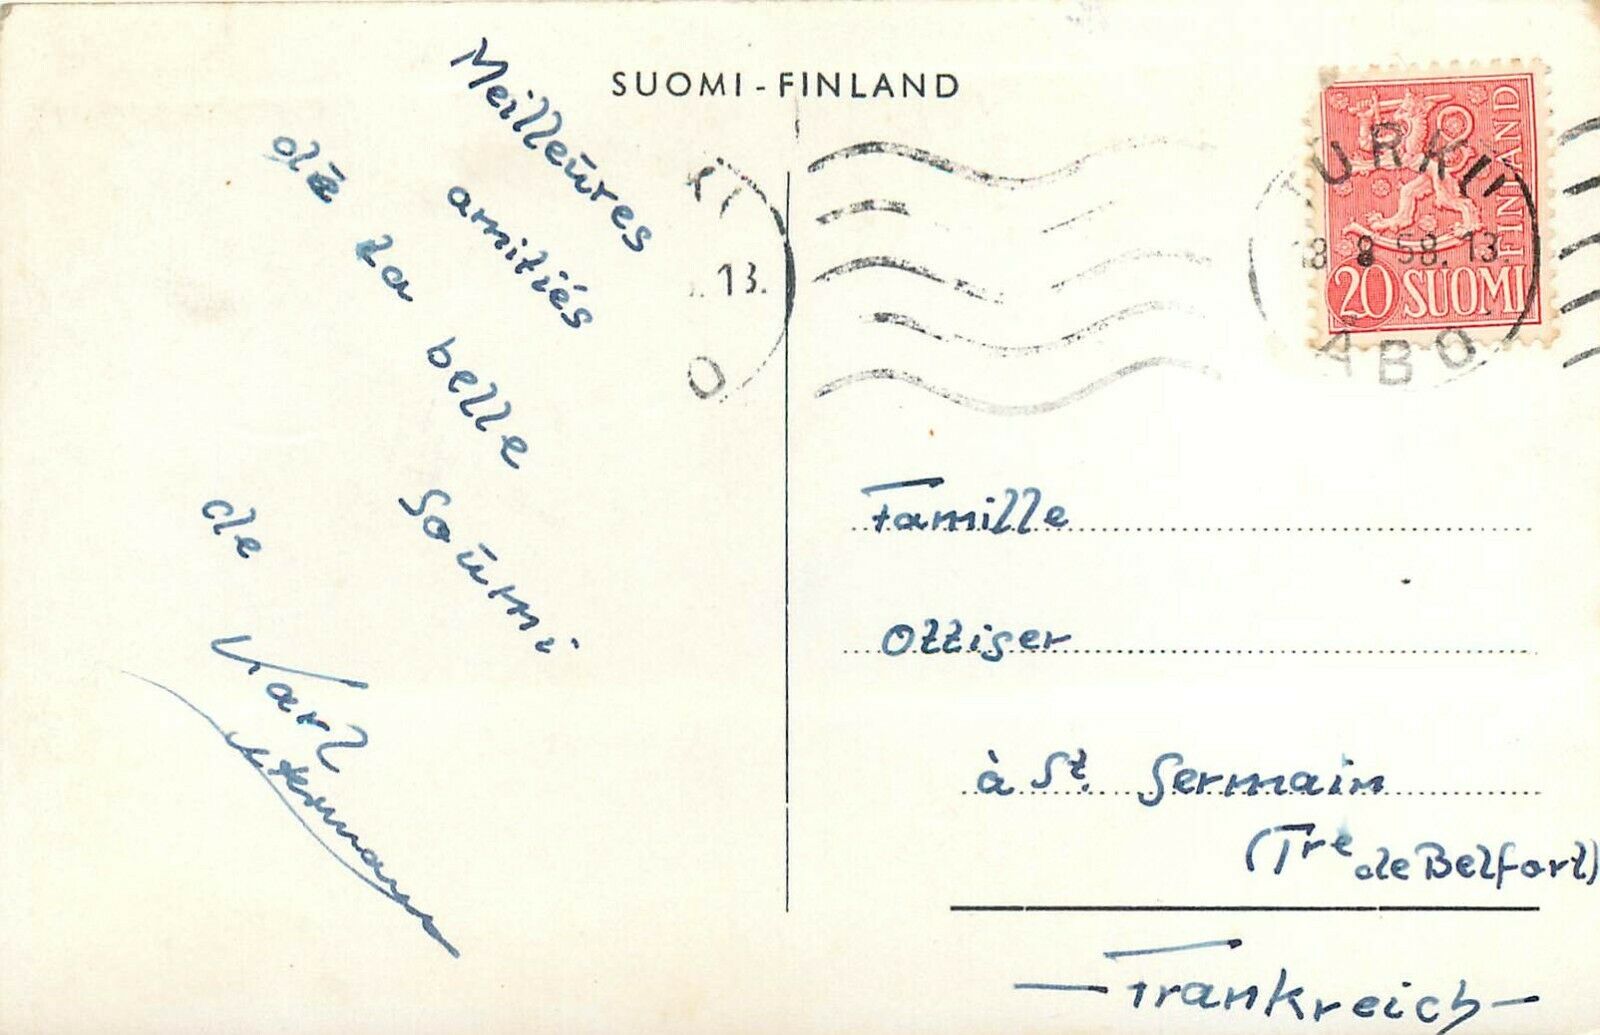 SUOMI - FINLAND
Meilleures
amitiés
de la belle
Soumi
de
Karl
KI
. 13.
O
TURKU
18. 8 58. 13.
ÅBO
FINLAND
20 SUOMI
Famille
Ottiger
à St. Germain
(Tre de Belfort)
- Frankreich -